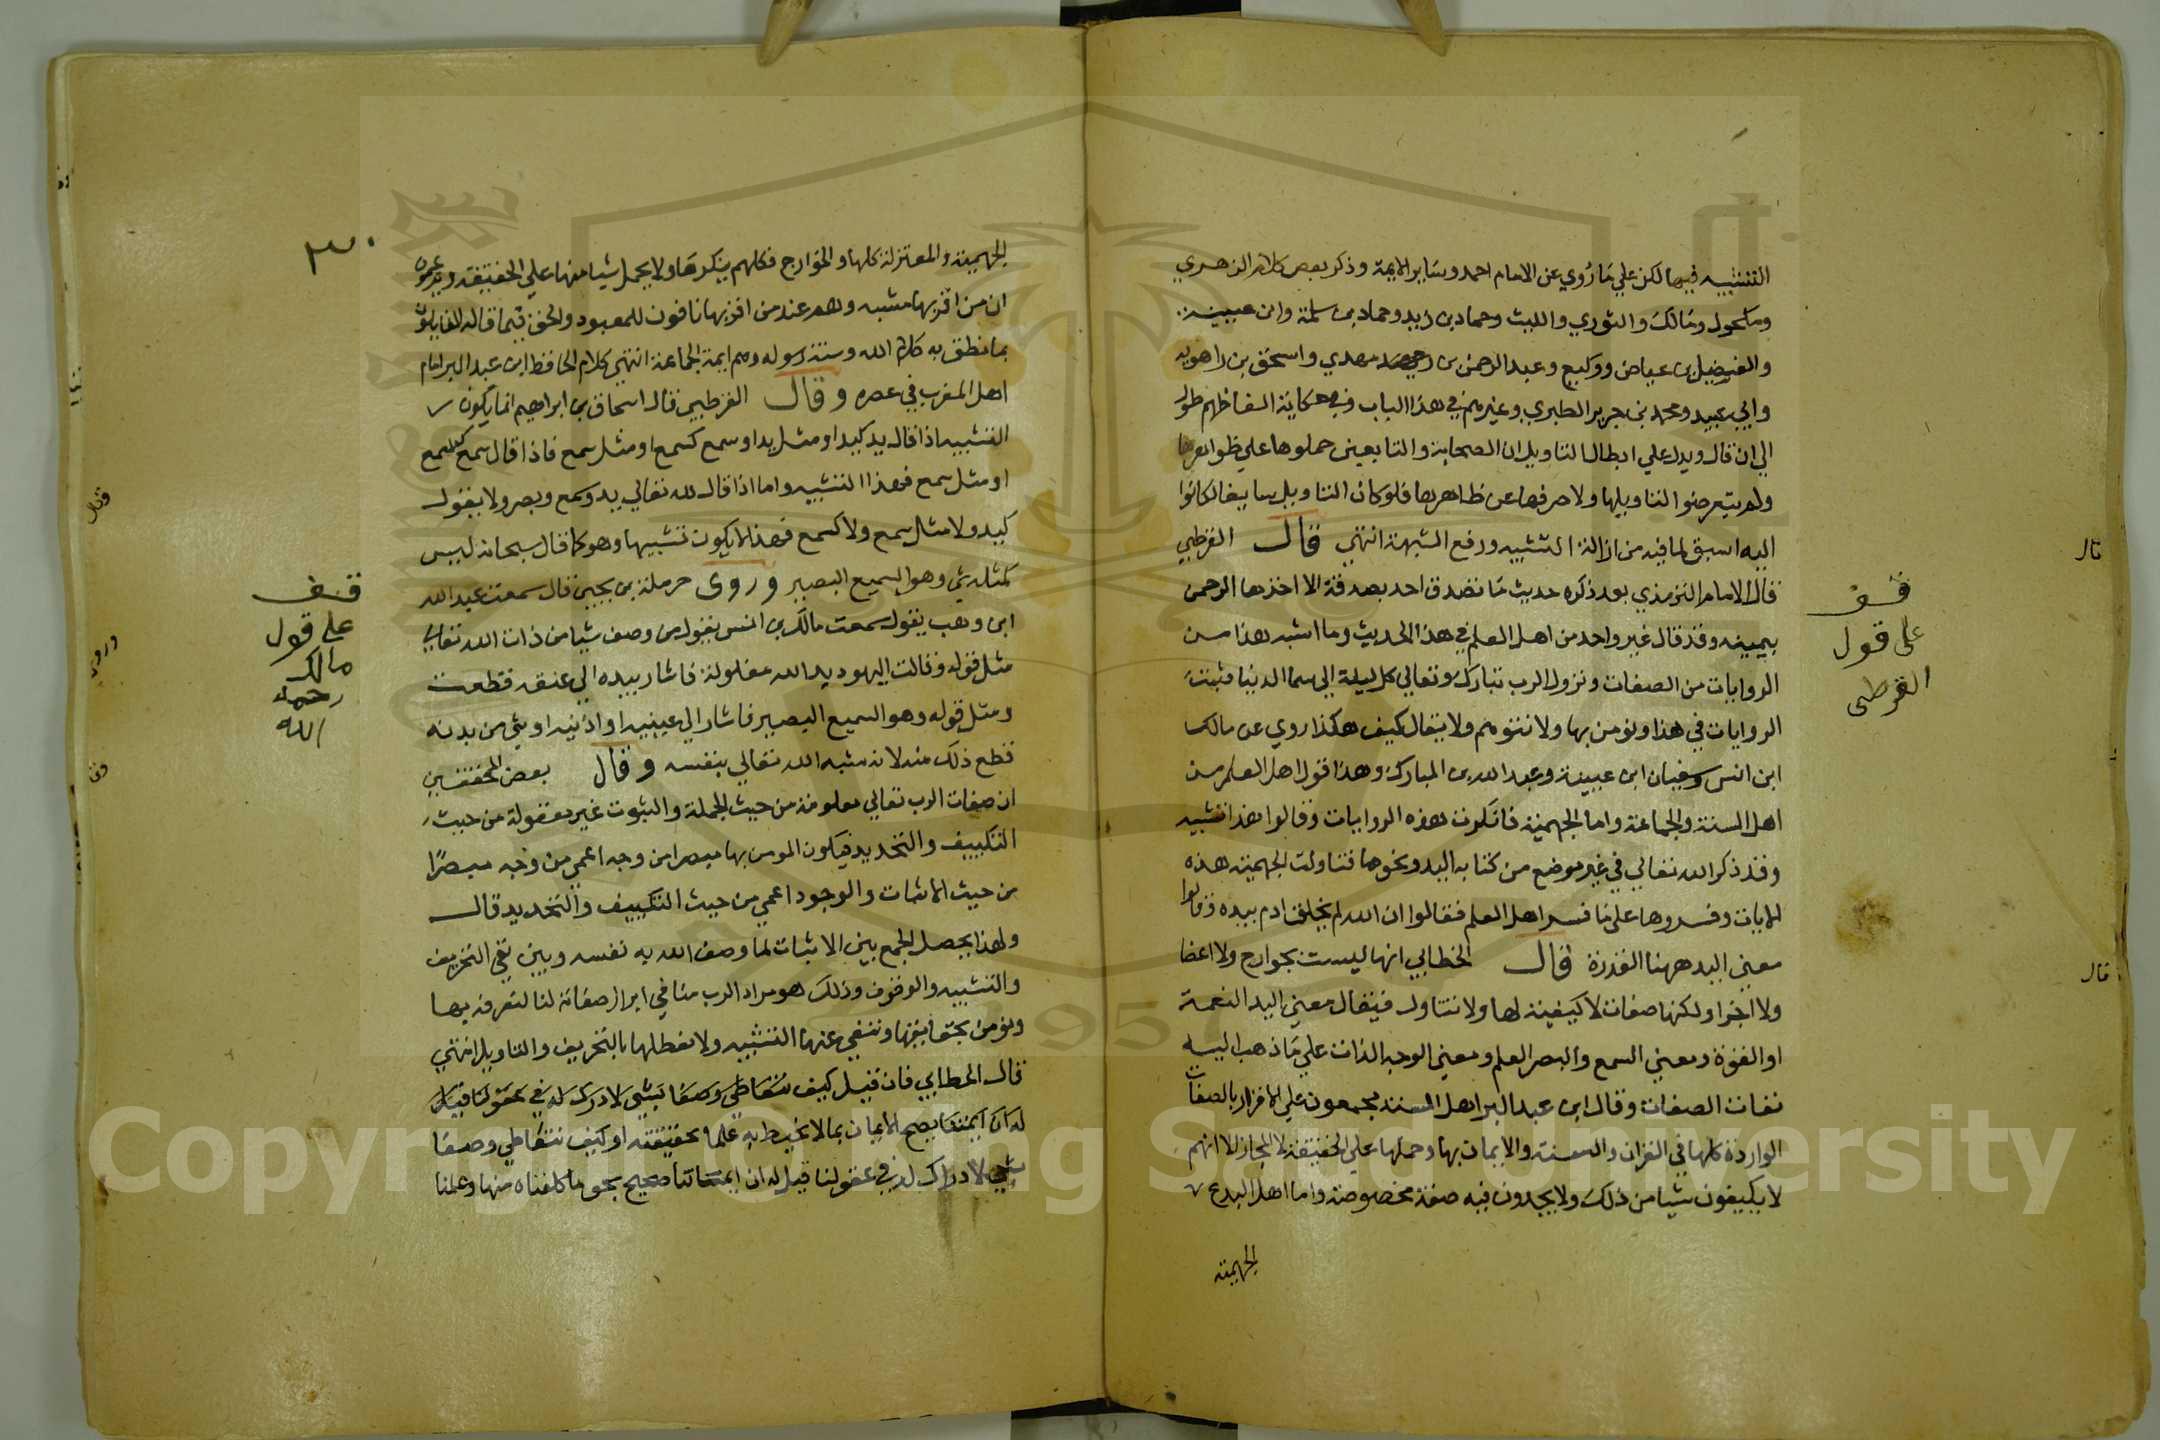 التشبيه فيها لكن علي ما رُوي عن الامام احمد وساير الايمة وذكر بعض كلام الزهري
ومكحول ومالك والثوري والليث وحماد بن زيد وحماد بن سلمة وابن عيينة
والفضيل بن عياض ووكيع وعبد الرحمن بن مهدي واسحق بن راهويه
وابي عبيد ومحمد بن جرير الطبري وغيرهم في هذا الباب وفي حكاية الفاظهم طول
الي ان قال ويدل علي ابطال التاويل ان الصحابة والتابعين حملوها علي ظواهرها
ولم يتعرضوا لتاويلها ولا صرفها عن ظاهرها فلو كان التاويل سايغا لكانوا
اليه اسبق لما فيه من ازالة التشبيه ورفع الشبهة انتهي قال القرطبي
قال الامام الترمذي بعد ذكره حديث ما تصدق احد بصدقة الا اخذها الرحمن
بيمينه وقد قال غير واحد من اهل العلم في هذا الحديث وما اشبه هذا من
الروايات من الصفات ونزول الرب تبارك وتعالي كل ليلة الي سما الدنيا تثبت
الروايات في هذا ونومن بها ولا نتوهم ولا يقال كيف هكذا روي عن مالك
ابن انس وسفيان ابن عيينة وعبد الله بن المبارك وهذا قول اهل العلم من
اهل السنة والجماعة واما الجهمية فانكرت هذه الروايات وقالوا هذا تشبيه
وقد ذكر الله تعالي في غير موضع من كتابه اليد ونحوها فتاولت الجهمية هذه
الايات وفسروها علي ما فسر اهل العلم فقالوا ان الله لم يخلق ادم بيده وقالوا
معني اليد ههنا القدرة قال الخطابي انها ليست بجوارح ولا اعضا
ولا اجزا ولكنها صفات لا كيفية لها ولا نتاول فيقال معني اليد النعمة
او القوة ومعني السمع والبصر العلم ومعني الوجه الذات علي ما ذهب اليه
نفات الصفات وقال ابن عبد البر اهل السنة مجمعون علي الاقرار بالصفات
الواردة كلها في القران والسنة والايمان بها وحملها علي الحقيقة لا المجاز الا انهم
لا يكيفون شيا من ذلك ولا يجدون فيه صفة مخصوصة واما اهل البدع
الجهمية
قف
على قول
القرطبى
قال
قال
٣٠
الجهمية والمعتزلة كلها والخوارج فكلهم ينكرها ولا يحمل شيا منها علي الحقيقة ويزعمون
ان من اقر بها مشبه وهم عند من اقر بها نافون للمعبود والحق فيما قاله القايلون
بما نطق به كلام الله وسنة رسوله وهم ايمة الجماعة انتهي كلام الحافظ ابن عبد البر امام
اهل المغرب في عصره وقال القرطبي قال اسحاق بن ابراهيم انما يكون
التشبيه اذا قال يد كيد او مثل يد او سمع كسمع او مثل سمع فاذا قال سمع كسمع
او مثل سمع فهذا التشبيه واما اذا قال لله تعالي يد وسمع وبصر ولا يقول
كيد ولا مثل سمع ولا كسمع فهذا لا يكون تشبيها وهو كما قال سبحانه ليس
كمثله شي وهو السميع البصير وروى حرملة بن يحيي قال سمعت عبد الله
ابن وهب يقول سمعت مالك بن انس يقول من وصف شيا من ذات الله تعالي
مثل قوله وقالت اليهود يد الله مغلولة فاشار بيده الي عنقه قطعت
ومثل قوله وهو السميع البصير فاشار الي عينيه او اذنيه او شي من بدنه
قطع ذلك منه لانه شبه الله تعالي بنفسه وقال بعض المحققين
ان صفات الرب تعالي معلومة من حيث الجملة والثبوت غير معقولة من حيث
التكييف والتحديد فيكون المومن بها مبصرا من وجه اعمي من وجه مبصرًا
من حيث الاثبات والوجود اعمي من حيث التكييف والتحديد قال
ولهذا يحصل الجمع بين الاثبات لما وصف الله به نفسه وبين نفي التحريف
والتشبيه والوقوف وذلك هو مراد الرب منا في ابراز صفاته لنا لنعرفه بها
ونومن بحقايقها وننفي عنها التشبيه ولا نعطلها بالتحريف والتاويل انتهي
قال الخطابي فان قيل كيف نتعاطى وصفا بشي لا درك له في عقولنا قيل
له ان ايمننا يصح الايمان بما لا نحيط به علما بحقيقته او كيف نتعاطي وصفا
بشي لا دراك له في عقولنا قيل له ان ايمانا صحيح بحق ما كلفناه منها وعلمنا
قف
على قول
مالك
رحمه
الله
وقال
وروى